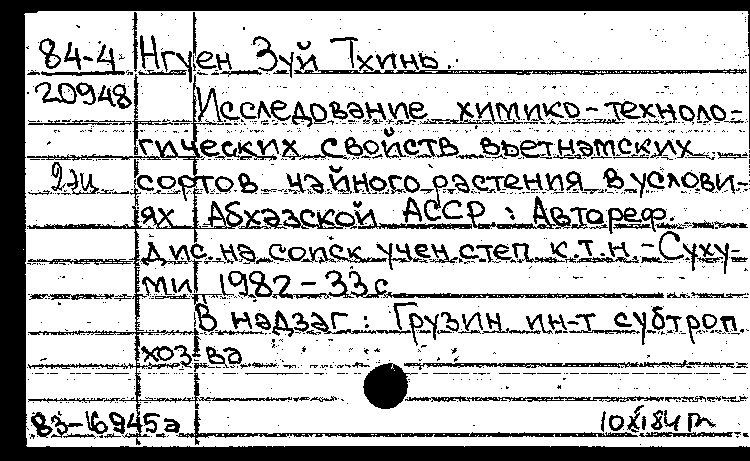 84-4 Нгуен Зуй Тхинь.
20948
Исследование химико-техноло-
гических свойств вьетнамских
2эи сортов чайного растения в услови-
ях Абхазской АССР.: Автореф.
дис. на соиск учен. степ к.т.н. - Суху-
ми 1982 - 33 с
В надзаг: Грузин. ин-т субтроп.
хоз-ва
83-16945а